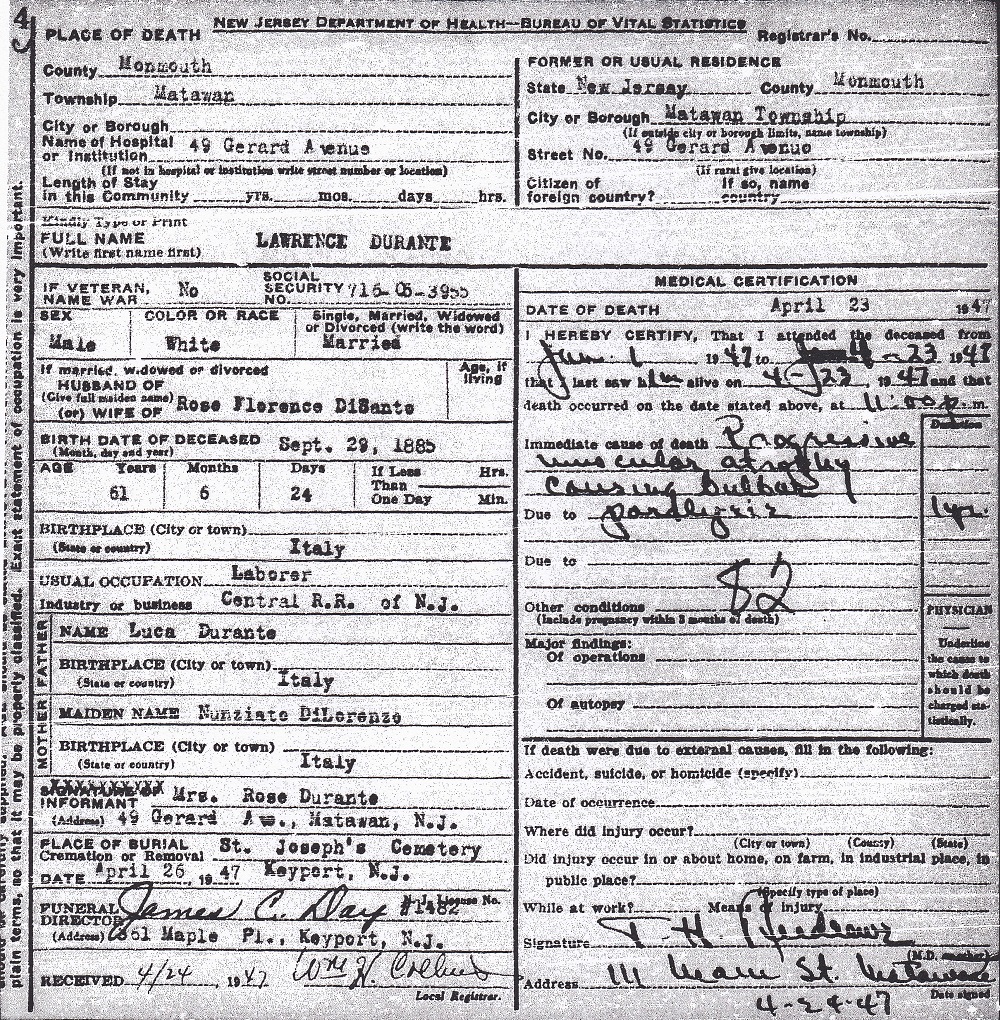 4
NEW JERSEY DEPARTMENT OF HEALTH—BUREAU OF VITAL STATISTICS
PLACE OF DEATH
Registrar's No.
County Monmouth
Township Matawan
City or Borough
Name of Hospital or Institution 49 Gerard Avenue
(If not in hospital or institution write street number or location)
Length of Stay
in this Community yrs. mos. days hrs.
FORMER OR USUAL RESIDENCE
State New Jersey County Monmouth
City or Borough Matawan Township
(If outside city or borough limits, name township)
Street No. 49 Gerard Avenue
(If rural give location)
Citizen of foreign country? If so, name country
Kindly Type or Print
FULL NAME LAWRENCE DURANTE
(Write first name first)
IF VETERAN, NAME WAR No
SOCIAL SECURITY NO. 716-05-3955
SEX Male
COLOR OR RACE White
Single, Married, Widowed or Divorced (write the word) Married
If married, widowed or divorced
HUSBAND OF
(Give full maiden name)
(or) WIFE OF Rose Florence DiSante
Age, if living
BIRTH DATE OF DECEASED Sept. 29, 1885
(Month, day and year)
AGE Years Months Days If Less Than One Day Hrs. Min.
61 6 24
BIRTHPLACE (City or town)
(State or country) Italy
USUAL OCCUPATION Laborer
Industry or business Central R.R. of N.J.
FATHER
NAME Luca Durante
BIRTHPLACE (City or town)
(State or country) Italy
MOTHER
MAIDEN NAME Nunziate DiLorenzo
BIRTHPLACE (City or town)
(State or country) Italy
SIGNATURE OF XXXXXXXXXX
INFORMANT Mrs. Rose Durante
(Address) 49 Gerard Ave., Matawan, N.J.
PLACE OF BURIAL St. Joseph's Cemetery
Cremation or Removal
DATE April 26, 1947 Keyport, N.J.
FUNERAL DIRECTOR James C. Day #1482 N.J. License No.
(Address) 361 Maple Pl., Keyport, N.J.
RECEIVED 4/24, 1947 Wm H.
Local Registrar.
MEDICAL CERTIFICATION
DATE OF DEATH April 23 1947
I HEREBY CERTIFY, That I attended the deceased from
Jan. 1 1947 to 4-23 1947
that I last saw him alive on 4-23, 1947 and that
death occurred on the date stated above, at 11:00 p.m.
Duration
Immediate cause of death Progressive
muscular atrophy
causing bulbar
Due to paralysis 1 yr.
Due to
82
Other conditions
(Include pregnancy within 3 months of death)
Major findings:
Of operations
Of autopsy
PHYSICIAN
Underline
the cause to
which death
should be
charged sta-
tistically.
If death were due to external causes, fill in the following:
Accident, suicide, or homicide (specify)
Date of occurrence
Where did injury occur?
(City or town) (County) (State)
Did injury occur in or about home, on farm, in industrial place, in
public place?
(Specify type of place)
While at work? Means of injury
Signature T. H.
(M.D.
Address 111 Main St. Matawan
Date signed
4-24-47
plain terms, so that it may be properly classified. Exact statement of occupation is very important.